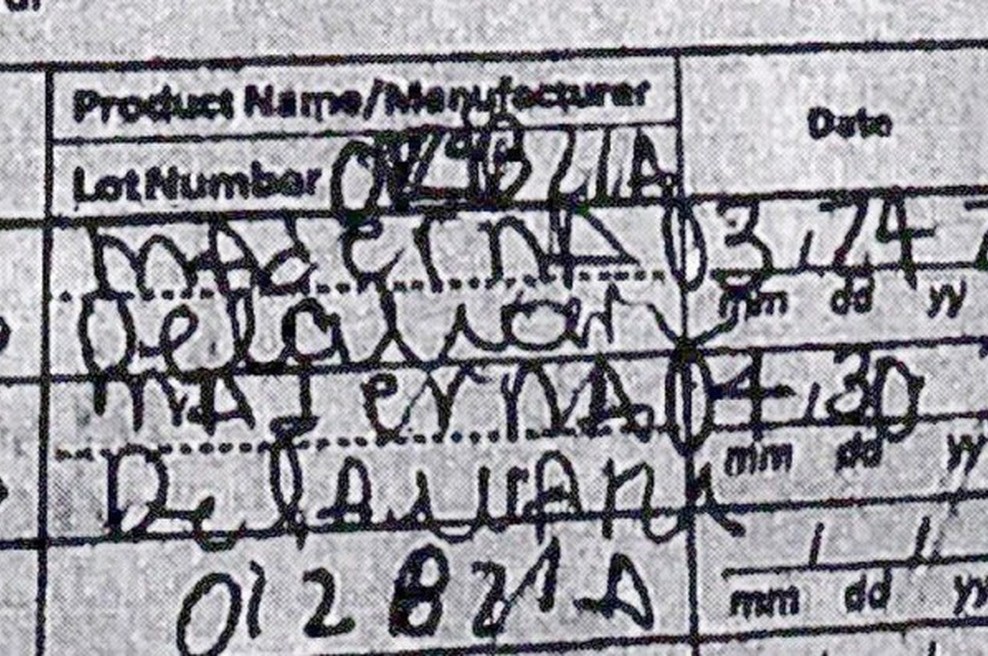 Product Name/Manufacturer
Date
Lot Number
mAdernA 03 / 24
mm dd yy
Delawar
mAdernA 04 / 30
mm dd yy
DelAwAre
/ /
012821A
mm dd yy